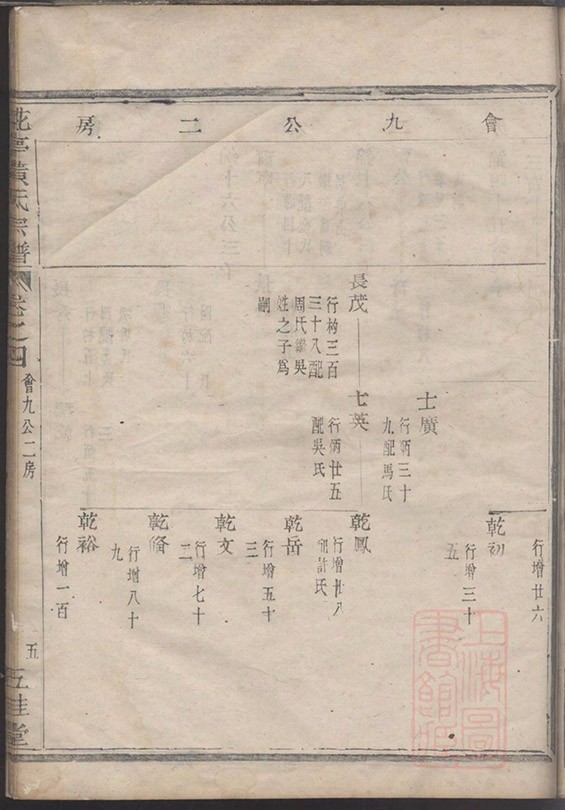 會九公二房
行增廿六
乾初
行增三十
五
士廣
行炳三十
九配馬氏
長茂
行杓三百
三十入配
周氏繼吳
姓之子為
嗣
七英
行炳廿五
配吳氏
乾鳳
行增廿八
配許氏
乾岳
行增五十
三
乾文
行增七十
二
乾脩
行增八十
九
乾裕
行增一百
黃氏宗譜
卷之四
會九公二房
五
五桂堂
上海圖
書館藏